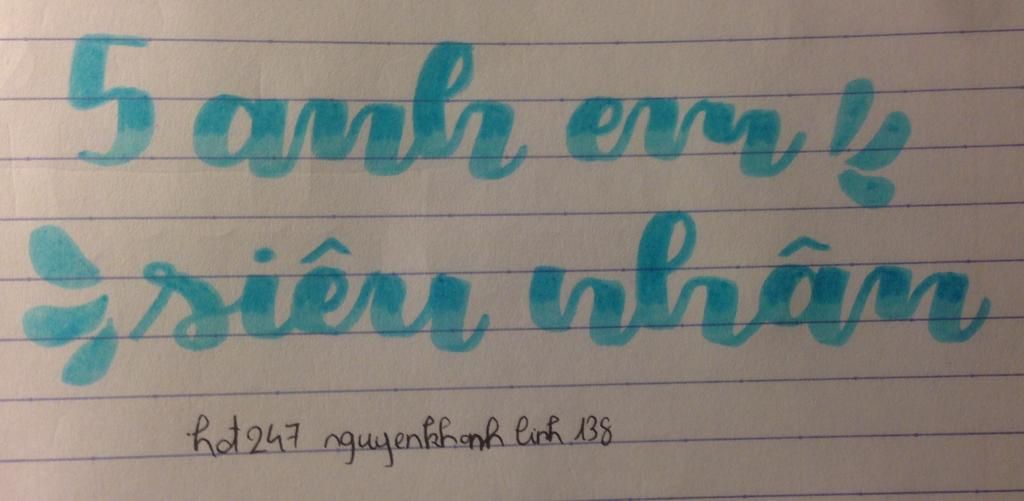 5 anh em
siêu nhân
hot247 nguyenkhanh linh 138